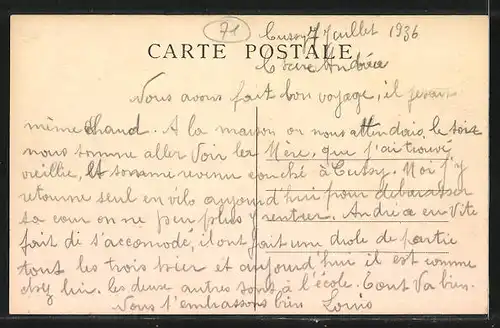 71
Cussy 7 Juillet 1936
CARTE POSTALE
Chère Andrée
Nous avons fait bon voyage, il fesait
même chaud. A la maison on nous attendais, le soir
nous somme aller voir ler Mère, que j'ai trouvé
vieillie, et somme revenu couché à Cussy. Moi j'y
retourne seul en vélo aujourd'hui pour debarasser
sa cour on ne peu plus y rentrer. André a eu vite
fait di s'accomodé, il ont fait une drole de partie
tout les trois hier et aujourd'hui il est comme
chez lui. les deux autres sont à l'école. Tout va bien.
Nous t'embrassons bien Louis